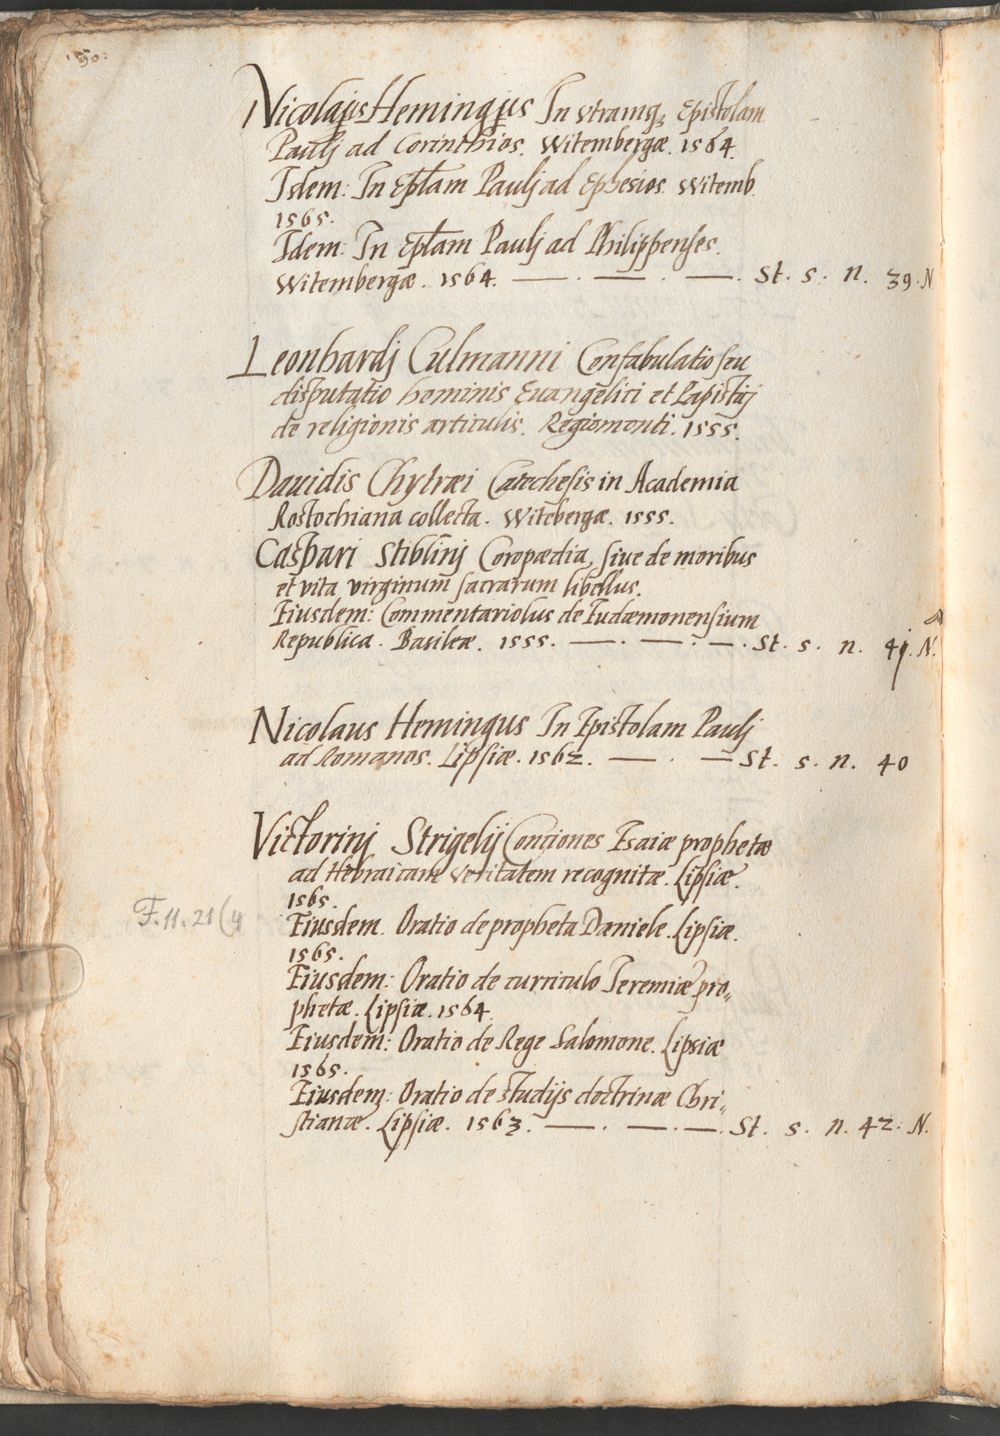 50.
Nicolaus Hemingius In vtramq; Epistolam
Paulj ad Corinthios. Witembergæ. 1564.
Idem: In Eplam Paulj ad Ephesios. Witemb.
1565.
Idem: In Eplam Paulj ad Philippenses.
Witembergæ. 1564. — . — . — . St. s. n. 39. N.
Leonhardj Culmanni Confabulatio seu
disputatio hominis Euangelici et Papistæ
de religionis articulis. Regiomonti. 1555.
Dauidis Chytræi Catechesis in Academia
Rostochiana collecta. Witebergæ. 1555.
Caspari Stiblinj Coropædia, siue de moribus
et vita virginum sacrarum libellus.
Eiusdem: Commentariolus de Eudæmonensium
Republica. Basileæ. 1555. — . — . — . St. s. n. 41. N.
Nicolaus Hemingus In Epistolam Paulj
ad Romanos. Lipsiæ. 1562. — . — St. s. n. 40
Victorinj Strigelij Conciones Esaiæ prophetæ
ad Hebraicam veritatem recognitæ. Lipsiæ.
1565.
F. 11. 21 (4
Eiusdem. Oratio de propheta Daniele. Lipsiæ.
1565.
Eiusdem: Oratio de curriculo Ieremiæ pro„
phetæ. Lipsiæ. 1564.
Eiusdem: Oratio de Rege Salomone. Lipsiæ
1565.
Eiusdem: Oratio de studijs doctrinæ Chri„
stianæ. Lipsiæ. 1563. — . — . — . St. s. n. 42. N.